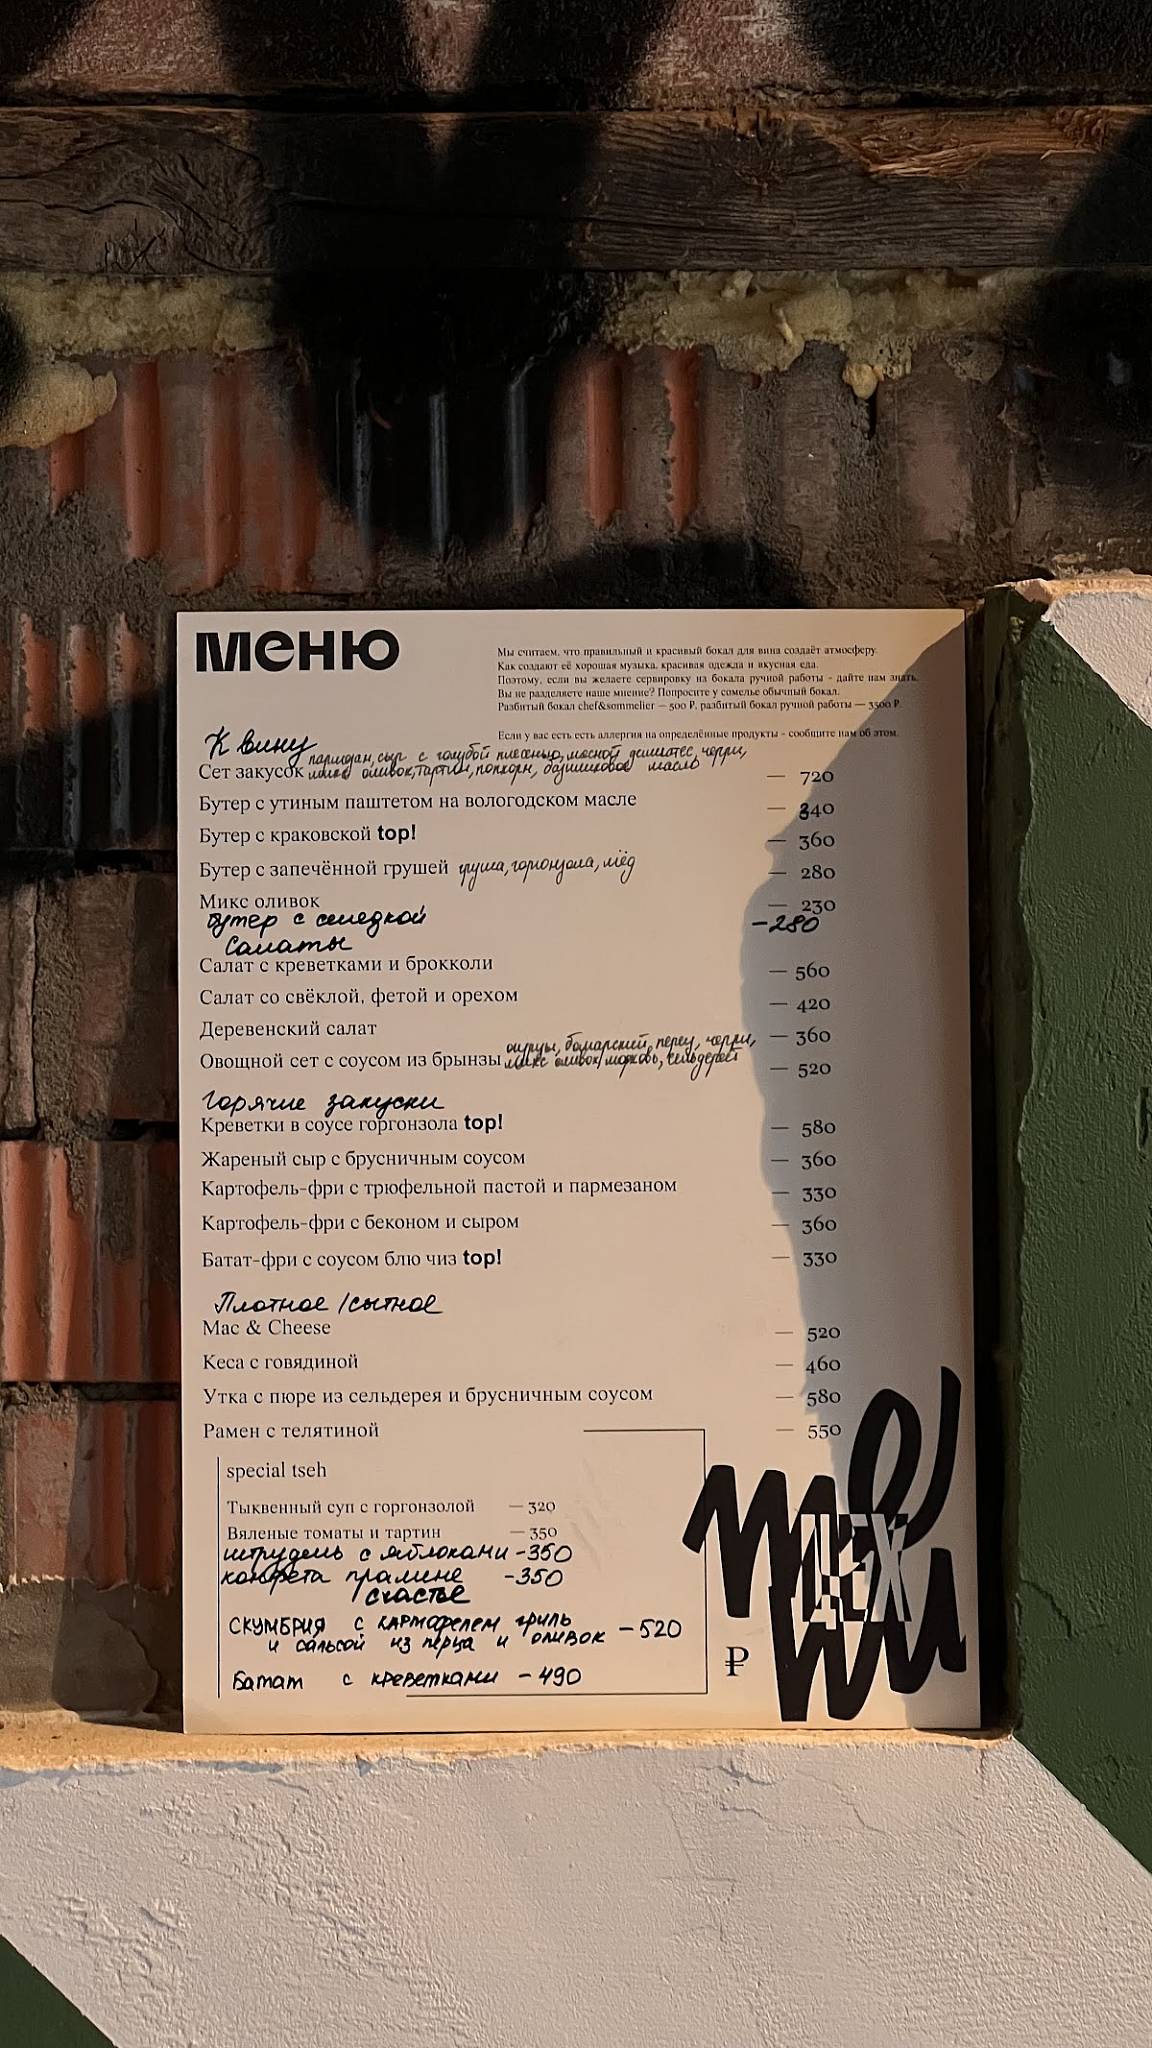 меню
Мы считаем, что правильный и красивый бокал для вина создаёт атмосферу.
Как создают её хорошая музыка, красивая одежда и вкусная еда.
Поэтому, если вы желаете сервировку на бокала ручной работы - дайте нам знать.
Вы не разделяете наше мнение? Попросите у сомелье обычный бокал.
Разбитый бокал chef&sommelier — 500 ₽, разбитый бокал ручной работы — 3500 ₽.
Если у вас есть есть аллергия на определённые продукты - сообщите нам об этом.
К вину
пармезан, сыр с голубой плесенью, мясной деликатес, черри,
Сет закусок микс оливок, тартин, попкорн, базиликовое масло — 720
Бутер с утиным паштетом на вологодском масле — 340
Бутер с краковской top! — 360
Бутер с запечённой грушей груша, горгонзола, мёд — 280
Микс оливок — 230
Бутер с селедкой -280
Салаты
Салат с креветками и брокколи — 560
Салат со свёклой, фетой и орехом — 420
Деревенский салат — 360
огурцы, болгарский перец, черри,
Овощной сет с соусом из брынзы микс оливок, морковь, сельдерей — 520
Горячие закуски
Креветки в соусе горгонзола top! — 580
Жареный сыр с брусничным соусом — 360
Картофель-фри с трюфельной пастой и пармезаном — 330
Картофель-фри с беконом и сыром — 360
Батат-фри с соусом блю чиз top! — 330
Плотное / сытное
Mac & Cheese — 520
Кеса с говядиной — 460
Утка с пюре из сельдерея и брусничным соусом — 580
Рамен с телятиной — 550
special tseh
Тыквенный суп с горгонзолой — 320
Вяленые томаты и тартин — 350
штрудель с яблоками -350
конфета пралине -350
/счастье
Скумбрия с картофелем гриль
и сальсой из перца и оливок — 520
Батат с креветками - 490
₽
меню
ЦЕХ